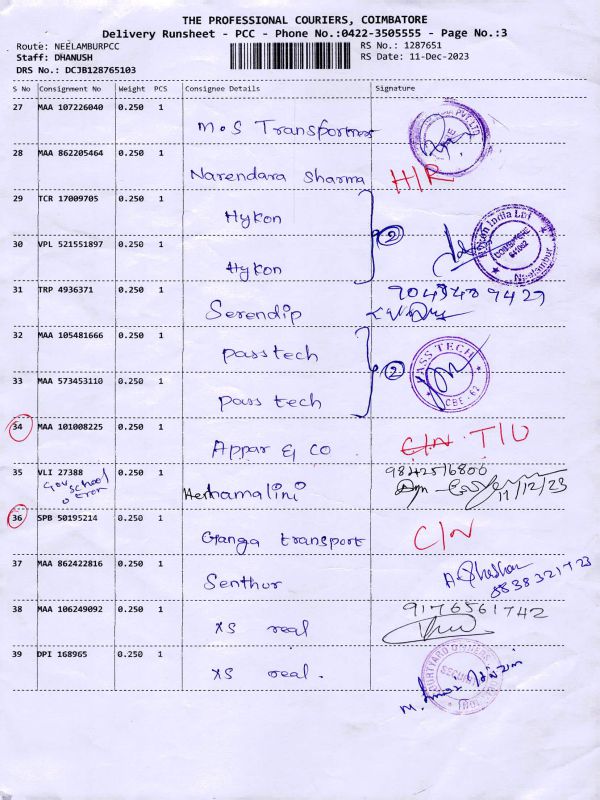 THE PROFESSIONAL COURIERS, COIMBATORE
Delivery Runsheet - PCC - Phone No.:0422-3505555 - Page No.:3
Route: NEELAMBURPCC RS No.: 1287651
Staff: DHANUSH RS Date: 11-Dec-2023
DRS No.: DCJB128765103
S No Consignment No Weight PCS Consignee Details Signature
27 MAA 107226040 0.250 1 M.S Transporters
28 MAA 862205464 0.250 1 Narendara Sharma H/R
29 TCR 17009705 0.250 1 Hykon
2
30 VPL 521551897 0.250 1 Hykon
India Ltd
Neelambur
31 TRP 4936371 0.250 1 Serendip
32 MAA 105481666 0.250 1 passtech
2 PASS TECH
CBE - 62
33 MAA 573453110 0.250 1 pass tech
34 MAA 101008225 0.250 1 Appar & co C/N T/U
35 VLI 27388 0.250 1 Hemamalini 9842516800
Gov school 11/12/23
36 SPB 50195214 0.250 1 Ganga transport C/N
37 MAA 862422816 0.250 1 Senthur
38 MAA 106249092 0.250 1 xs real 9176561742
39 DPI 168965 0.250 1 xs real.